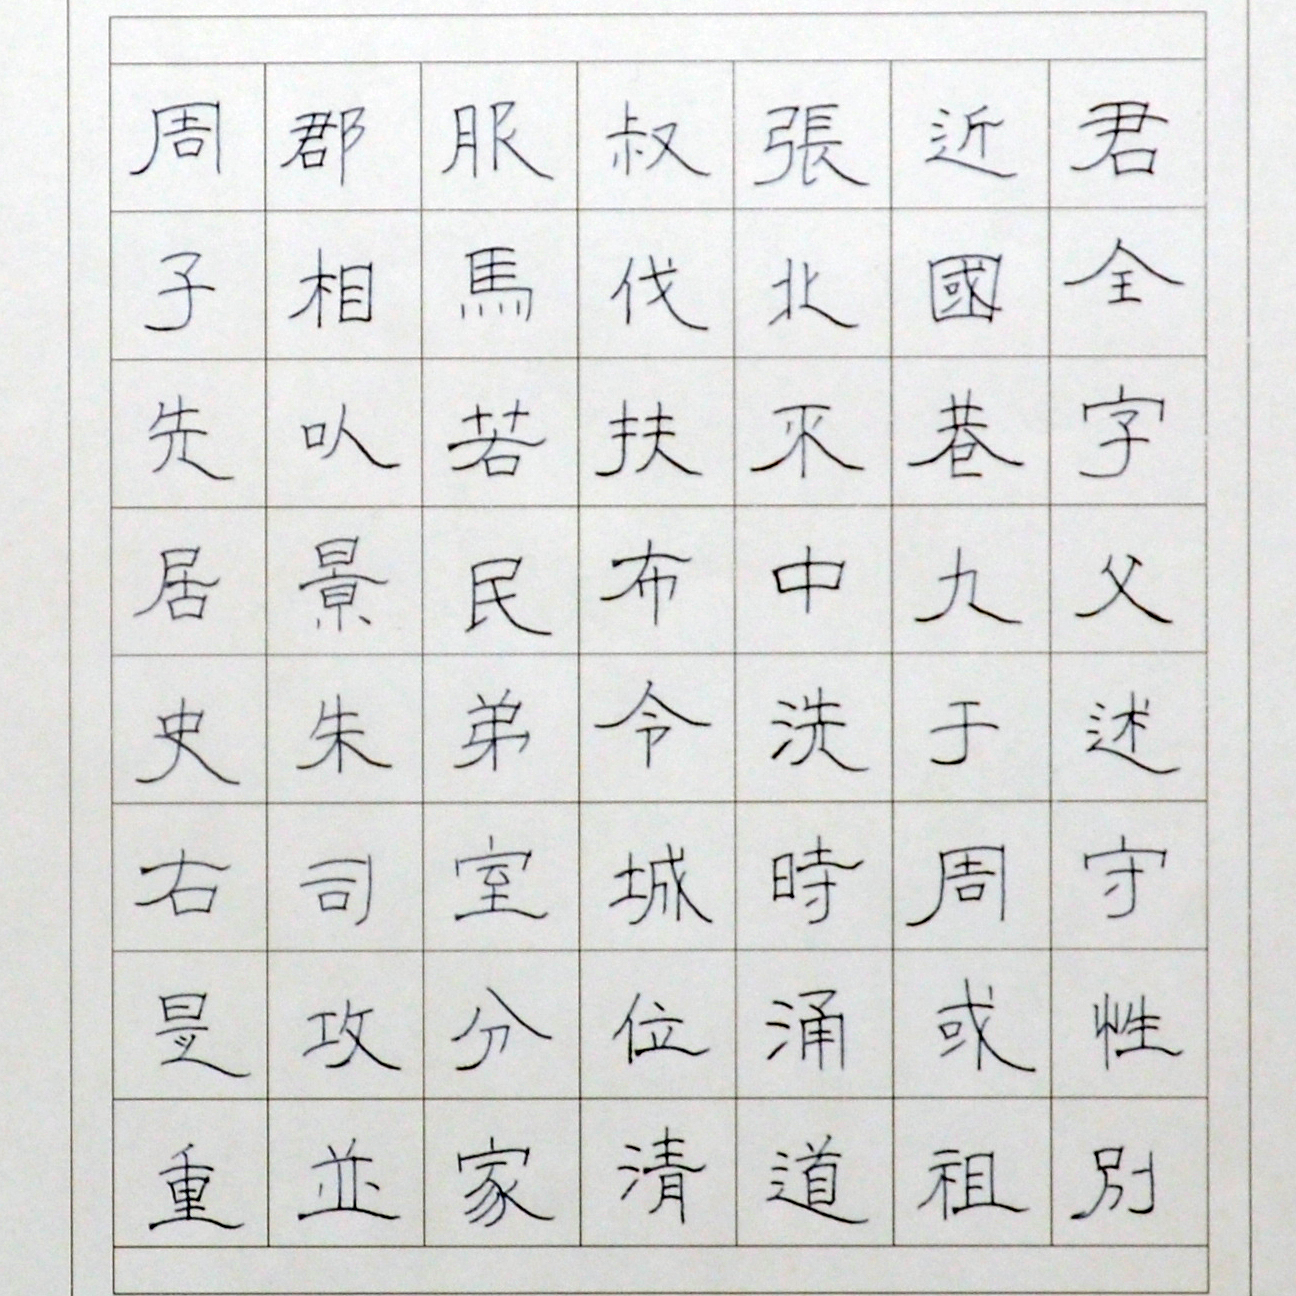 君全字父述守性別
近國巷九于周或祖
張北來中洗時涌道
叔伐扶布令城位清
服馬若民弟室分家
郡相㕥景朱司攻並
周子先居史右是重